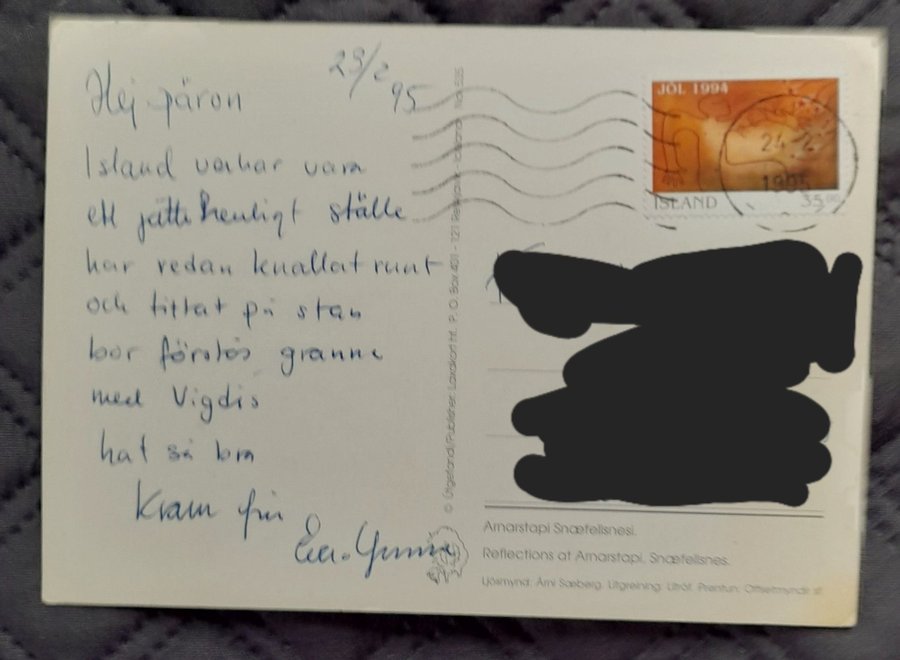 23/2
95
Hej päron
Island verkar vara
ett jättetrevligt ställe
har redan knallat runt
och tittat på stan
bor förstås granne
med Vigdis
hat så bra
Kram från
JÓL 1994
24 2
1995
ÍSLAND 35
© Útgefandi/Publisher: Laxakort hf. P. O. Box 401 - 121 Reykjavík - Iceland
Arnarstapi Snæfellsnesi.
Reflections at Arnarstapi, Snæfellsnes.
Ljósmynd: Árni Sæberg. Litgreining: Litróf. Prentun: Offsetmyndir sf.